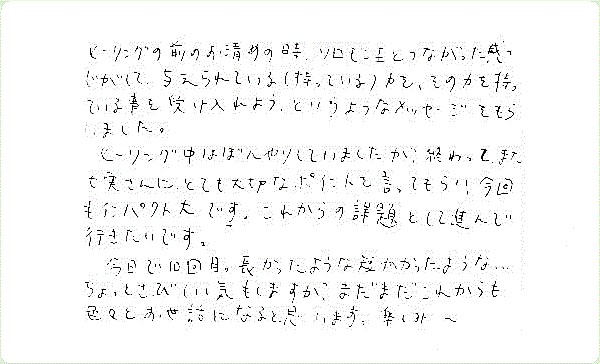 ヒーリングの前のお清めの時、ソロモン王とつながった感
じがして、与えられている(持っている)力を、その力を持っ
ている事を受け入れよう、というようなメッセージをもら
いました。
ヒーリング中はぼんやりしていましたが、終わって、また
も実さんに、とても大切なポイントを言ってもらい、今回
もインパクト大です。これからの課題として進んで
行きたいです。
今日で10回目。長かったような短かかったような…
ちょっとさびしい気もしますが、まだまだこれからも
色々とお世話になると思います。楽しみ〜